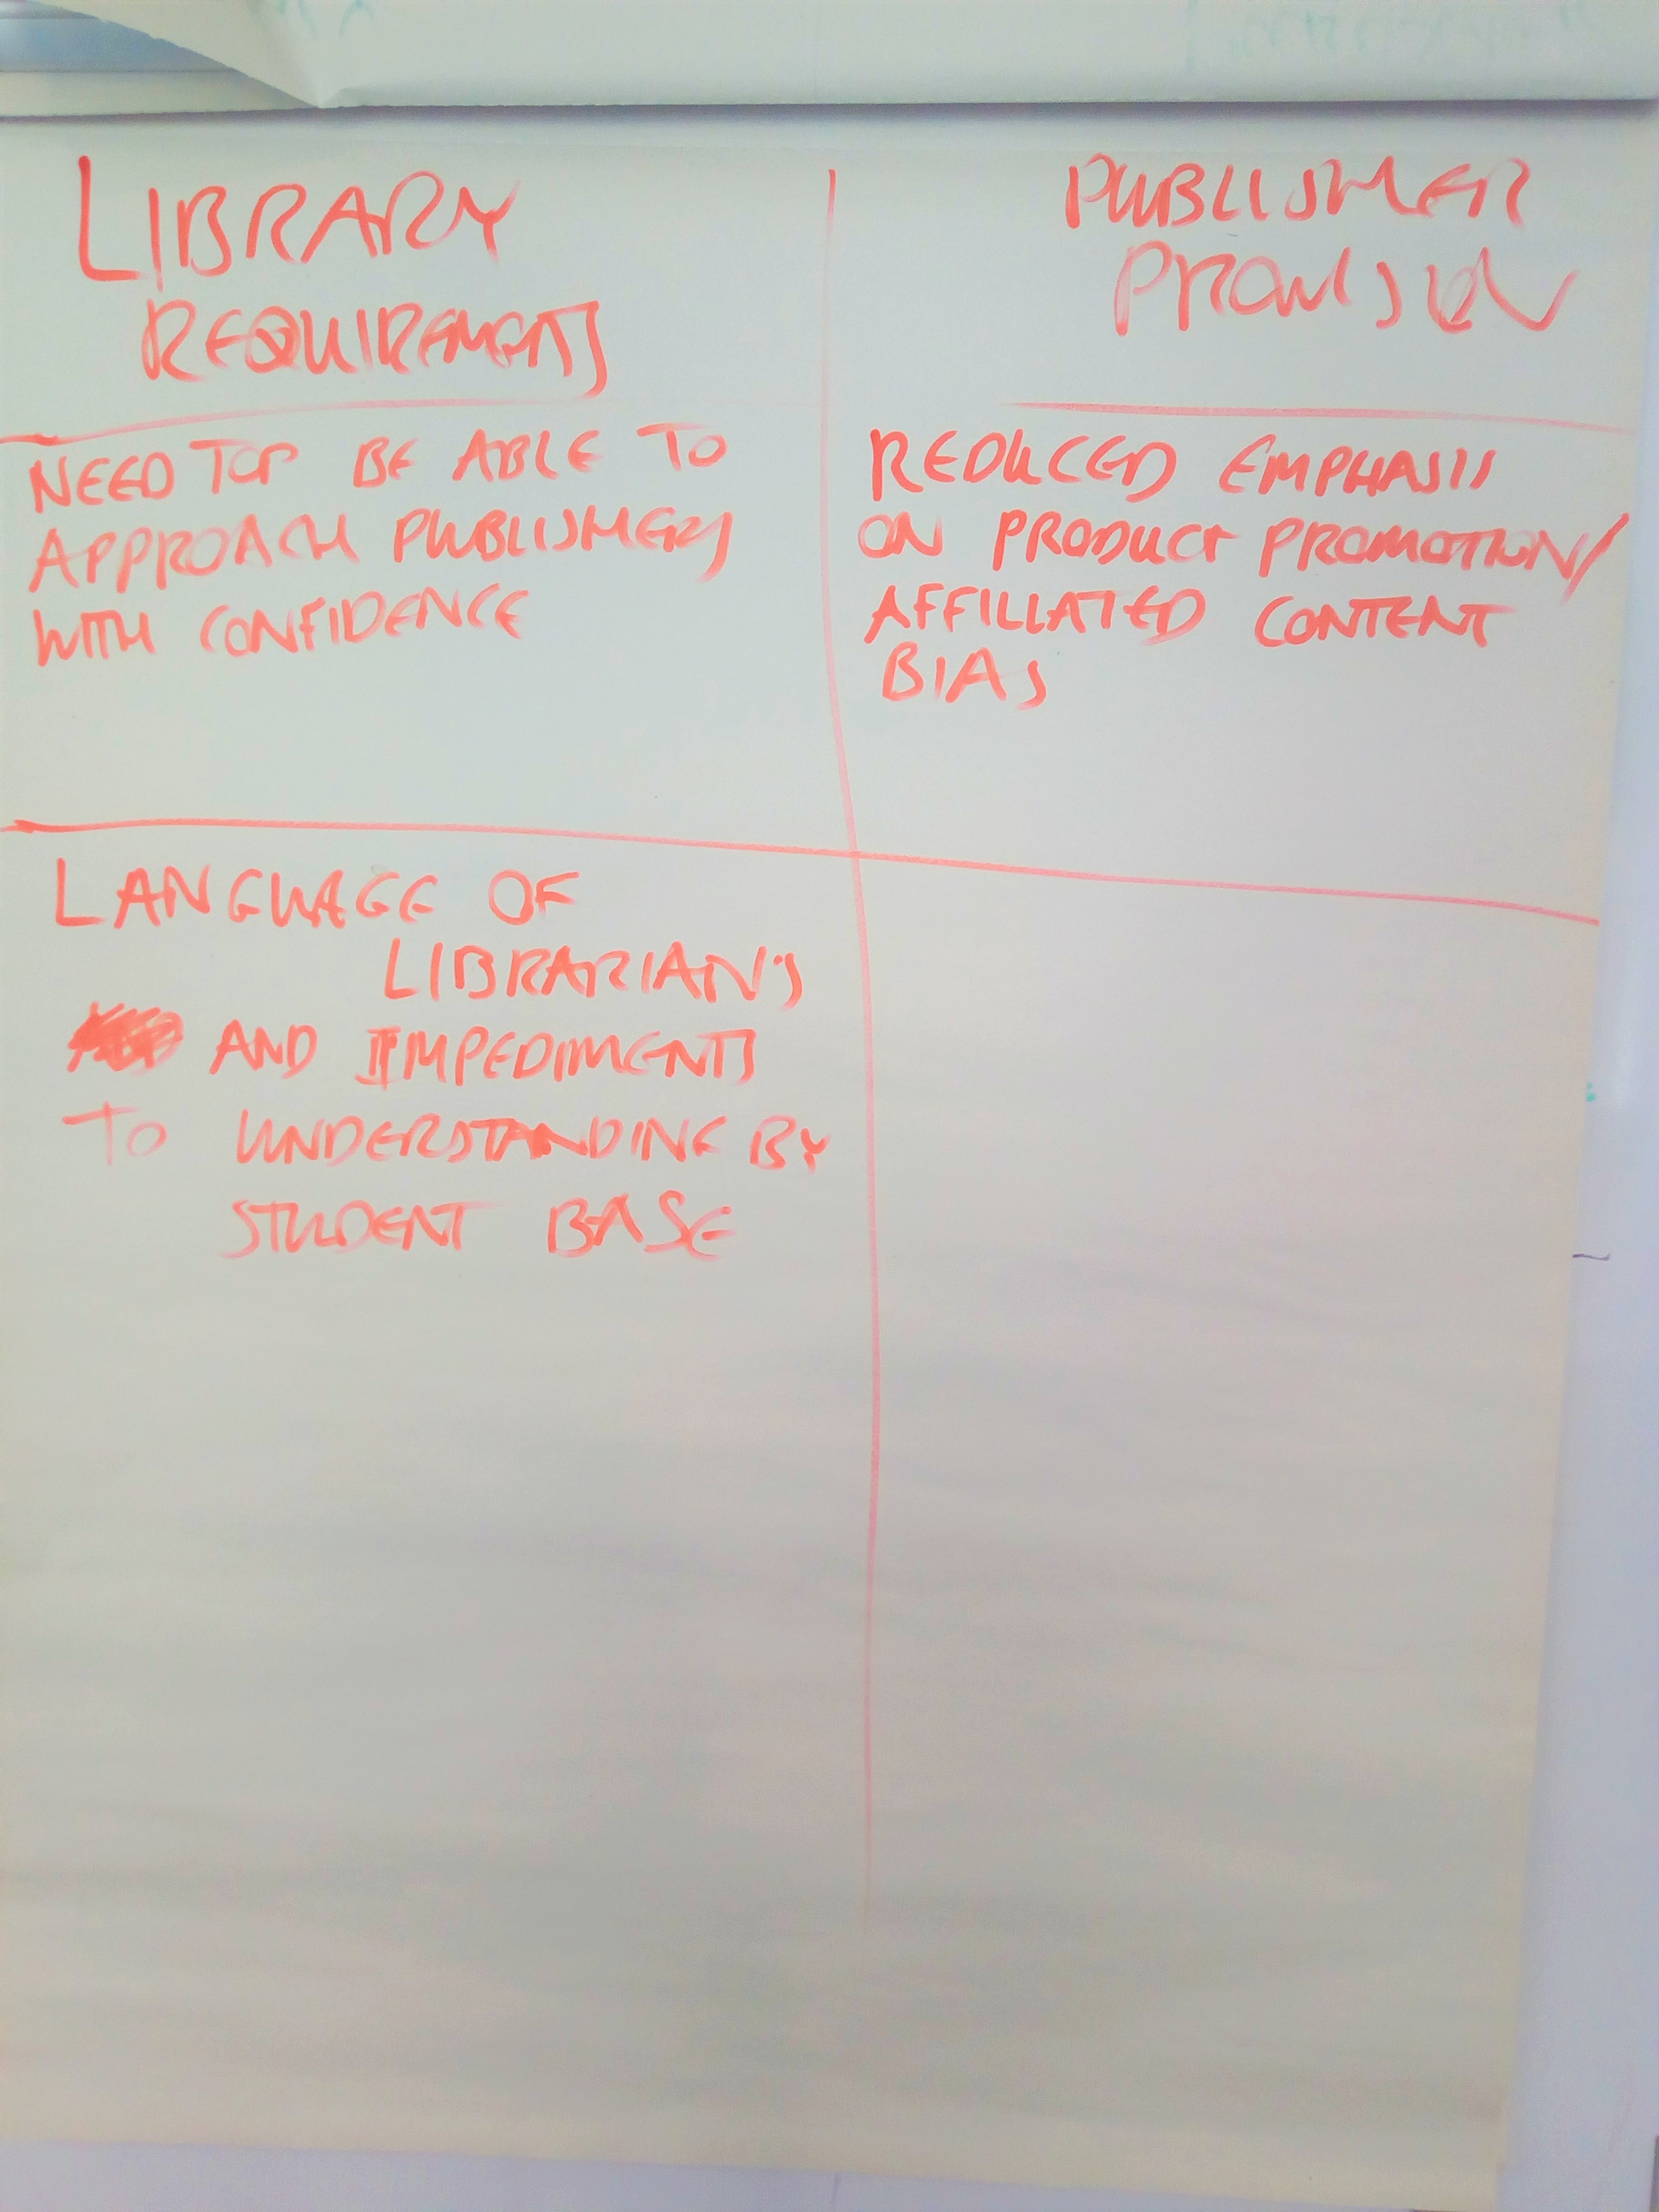 LIBRARY
REQUIREMENTS
PUBLISHER
PROVISION
NEED TOP BE ABLE TO
APPROACH PUBLISHERS
WITH CONFIDENCE
REDUCED EMPHASIS
ON PRODUCT PROMOTION/
AFFILLATED CONTENT
BIAS
LANGUAGE OF
LIBRARIAN'S
AND IMPEDIMENTS
TO UNDERSTANDING BY
STUDENT BASE